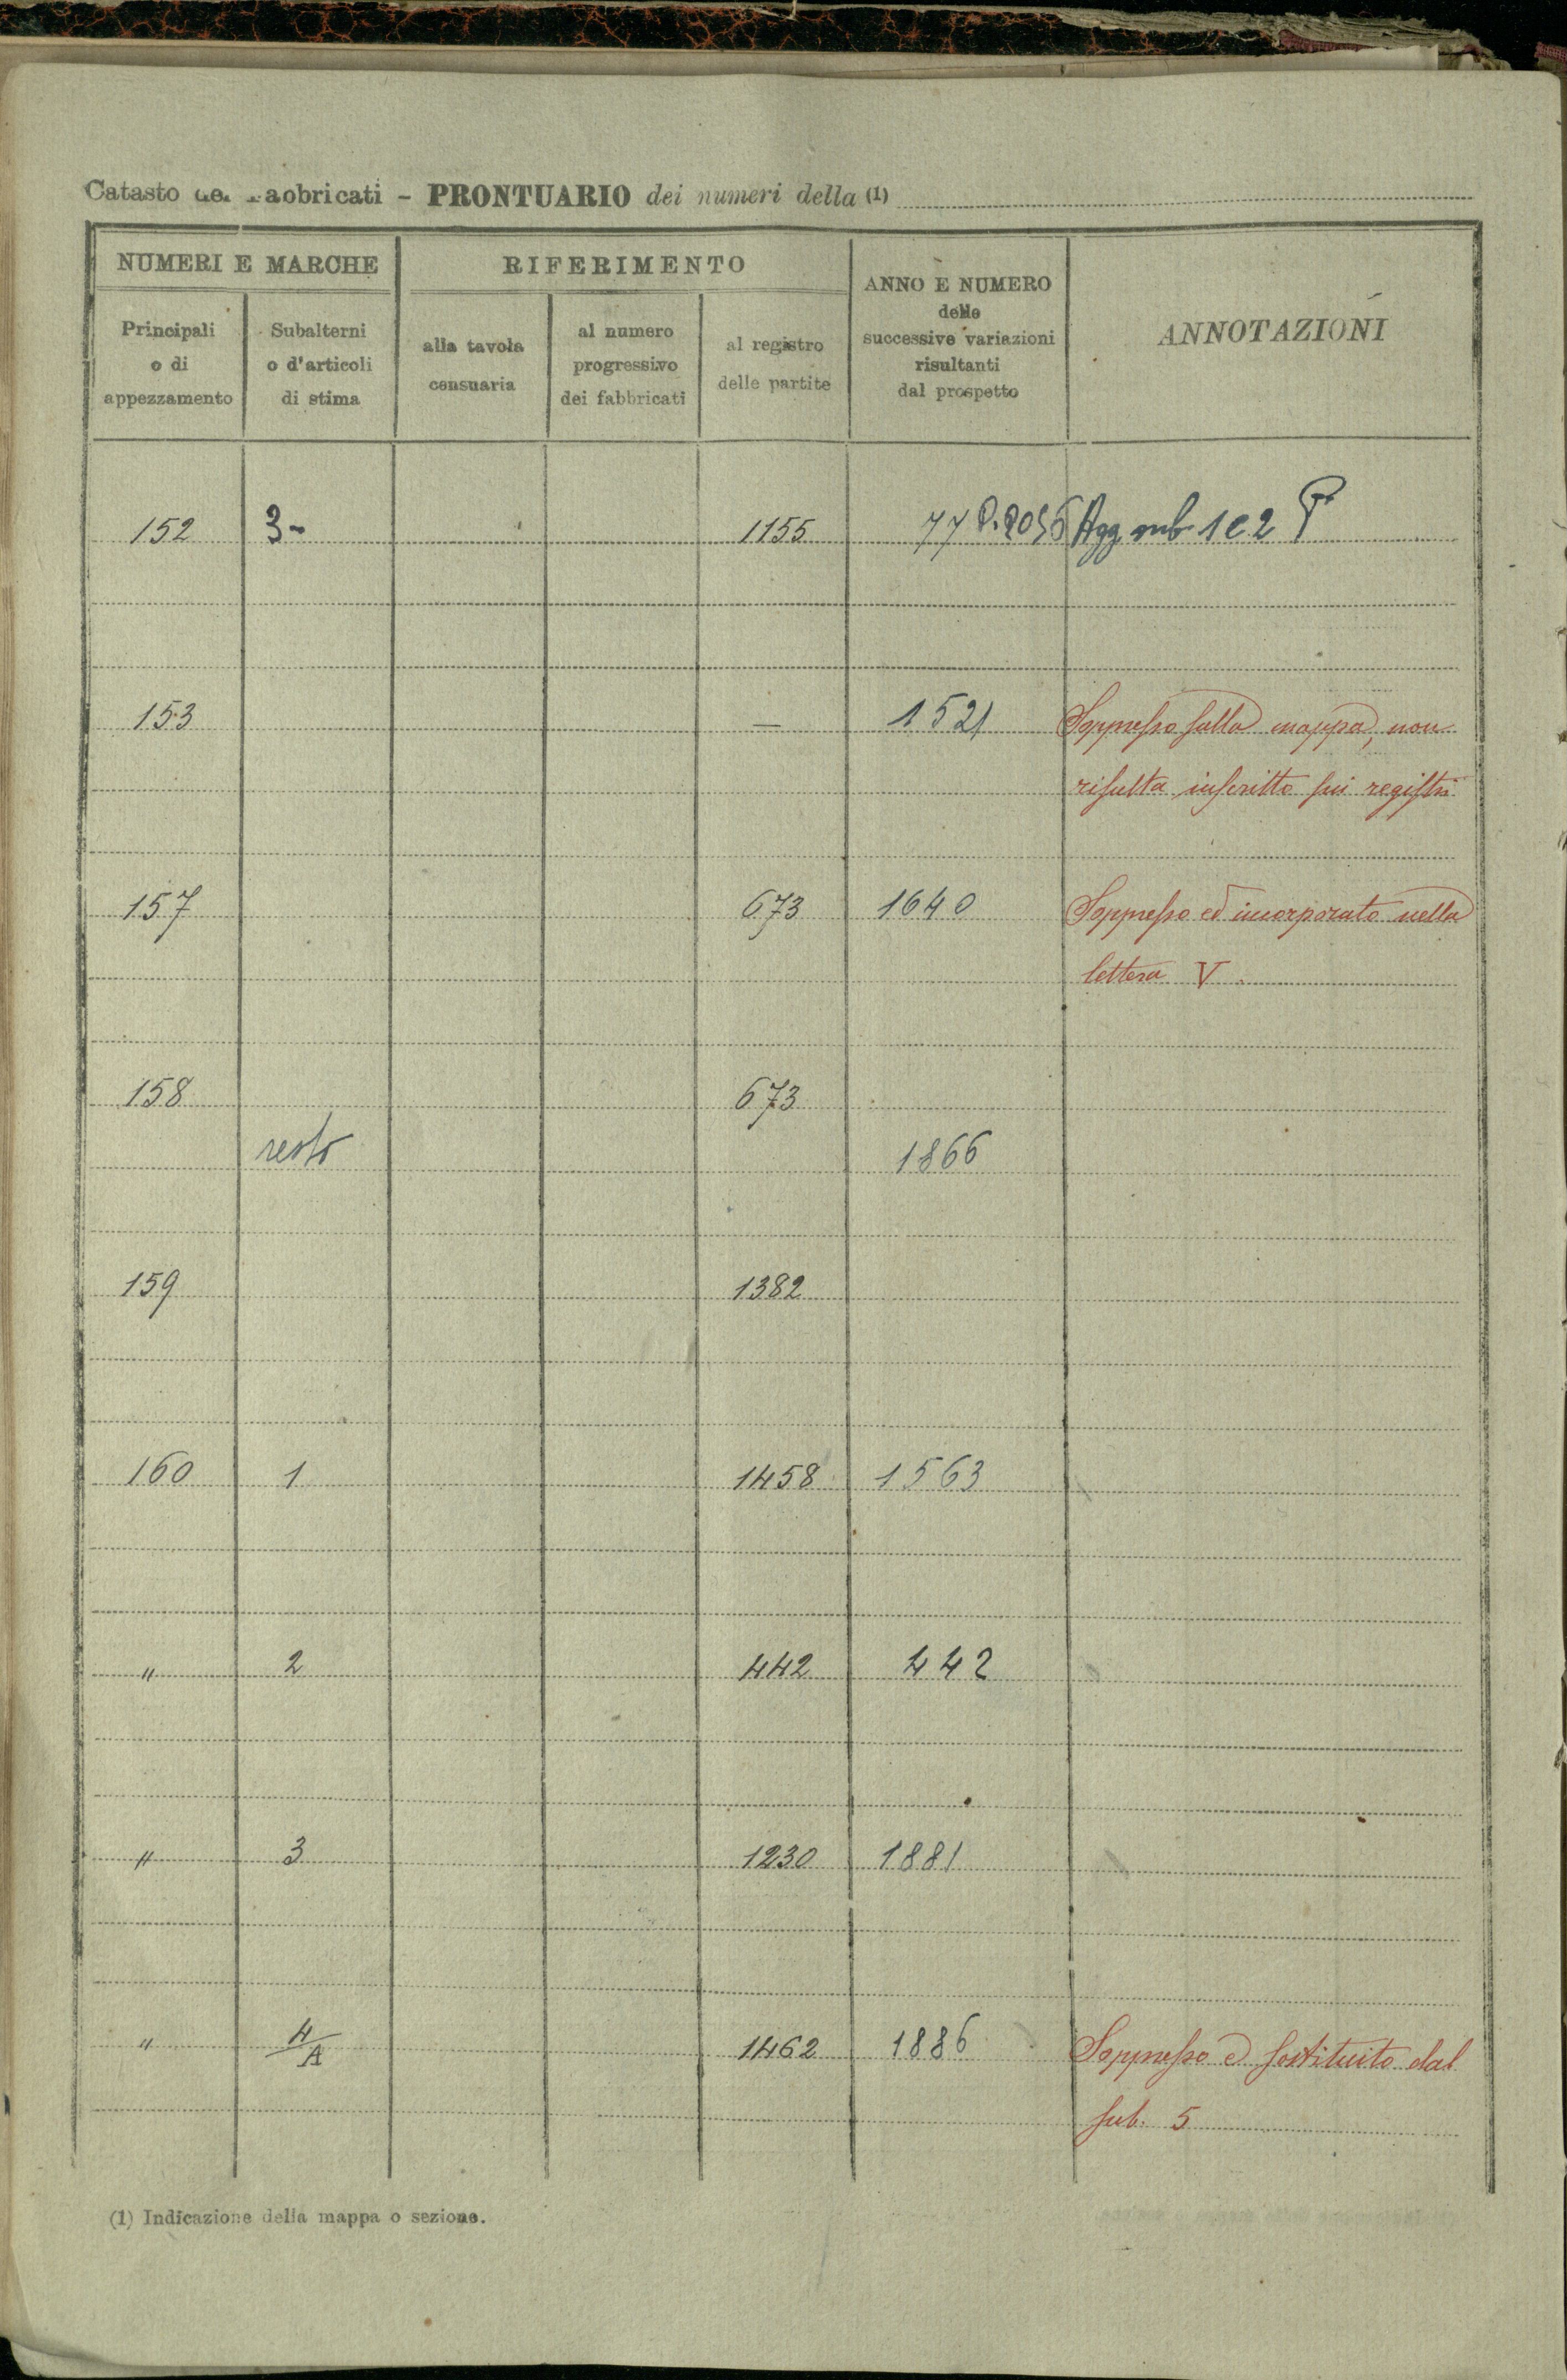 Catasto dei Fabbricati - PRONTUARIO dei numeri della (1)
NUMERI E MARCHE RIFERIMENTO ANNO E NUMERO delle successive variazioni risultanti dal prospetto ANNOTAZIONI
Principali o di appezzamento Subalterni o d'articoli di stima alla tavola censuaria al numero progressivo dei fabbricati al registro delle partite
152 3- 1155 77 Agg sub 1 e 2
153 — 1521 Soppresso sulla mappa, non
risulta inscritto sui registri
157 673 1640 Soppresso ed incorporato nella
lettera V.
158 673
resto 1866
159 1382
160 1 1458 1563
" 2 442 442
" 3 1230 1881
" 4/A 1462 1886 Soppresso e sostituito dal
sub. 5
(1) Indicazione della mappa o sezione.